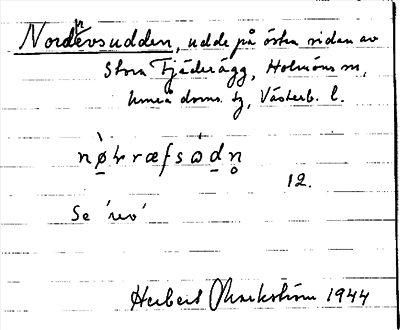 Nordrevsudden, udde på östra sidan av
Stora Fjäderägg, Holmöns sn,
Umeå doms. tg, Västerb. l.
12.
Se 'rev'
Herbert Markström 1944